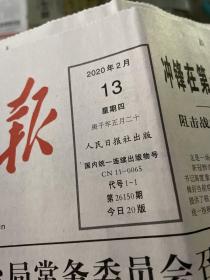 报
2020年2月
13
星期四
庚子年正月二十
人民日报社出版
国内统一连续出版物号
CN 11-0065
代号1-1
第26150期
今日20版
冲锋在第
阻击战
局常务委员会